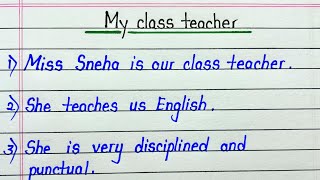 My class teacher
1) Miss Sneha is our class teacher.
2) She teaches us English.
3) She is very disciplined and
punctual.